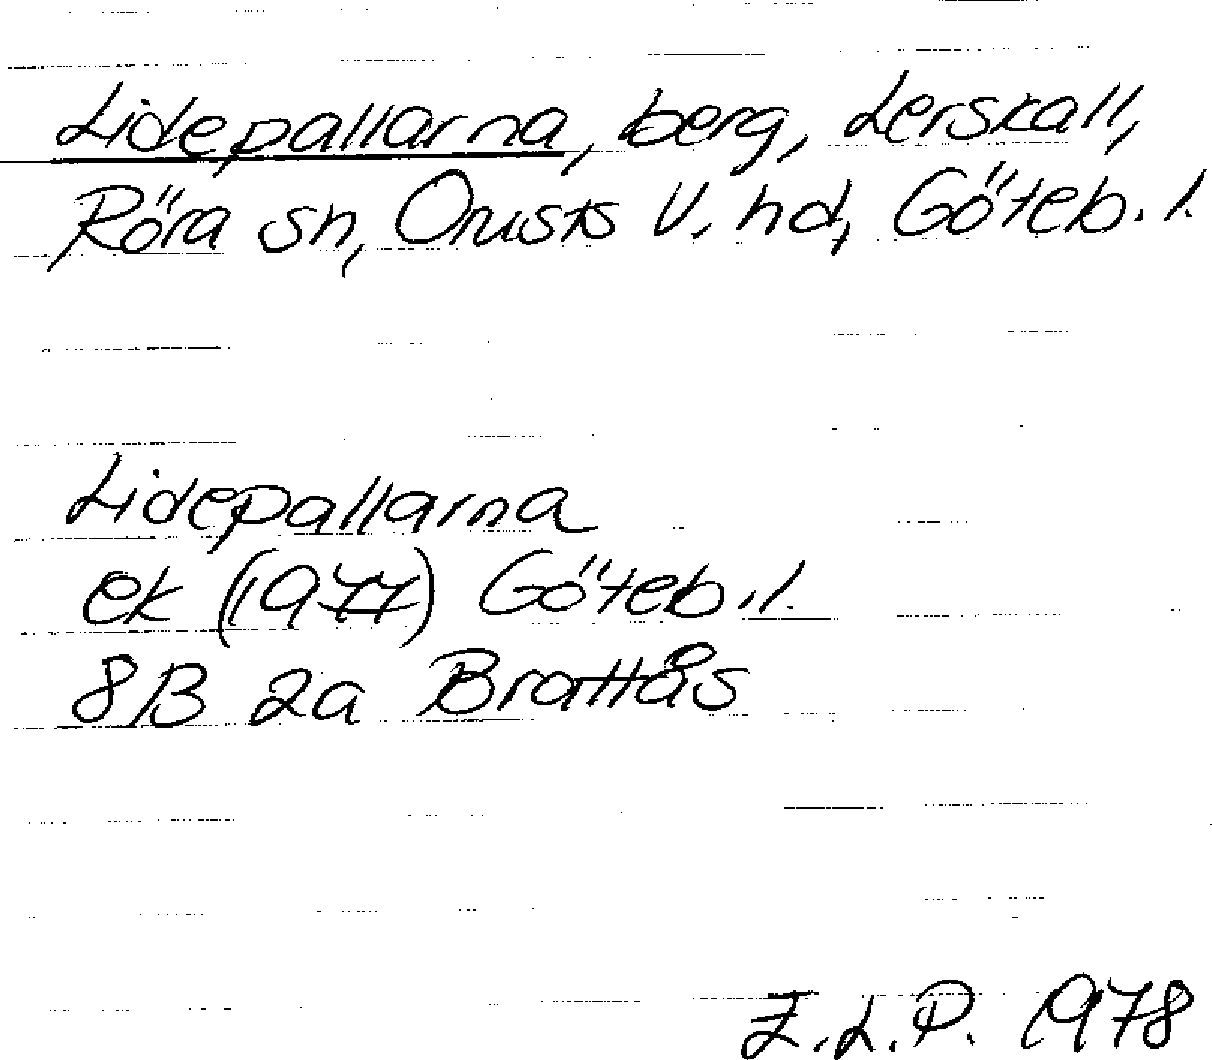 Lidepallarna, berg, Lerskall,
Röra sn, Orusts V. hd, Göteb. l.
Lidepallarna
ek (1977) Göteb. l.
8B 2a Brattås
E.L.P. 1978